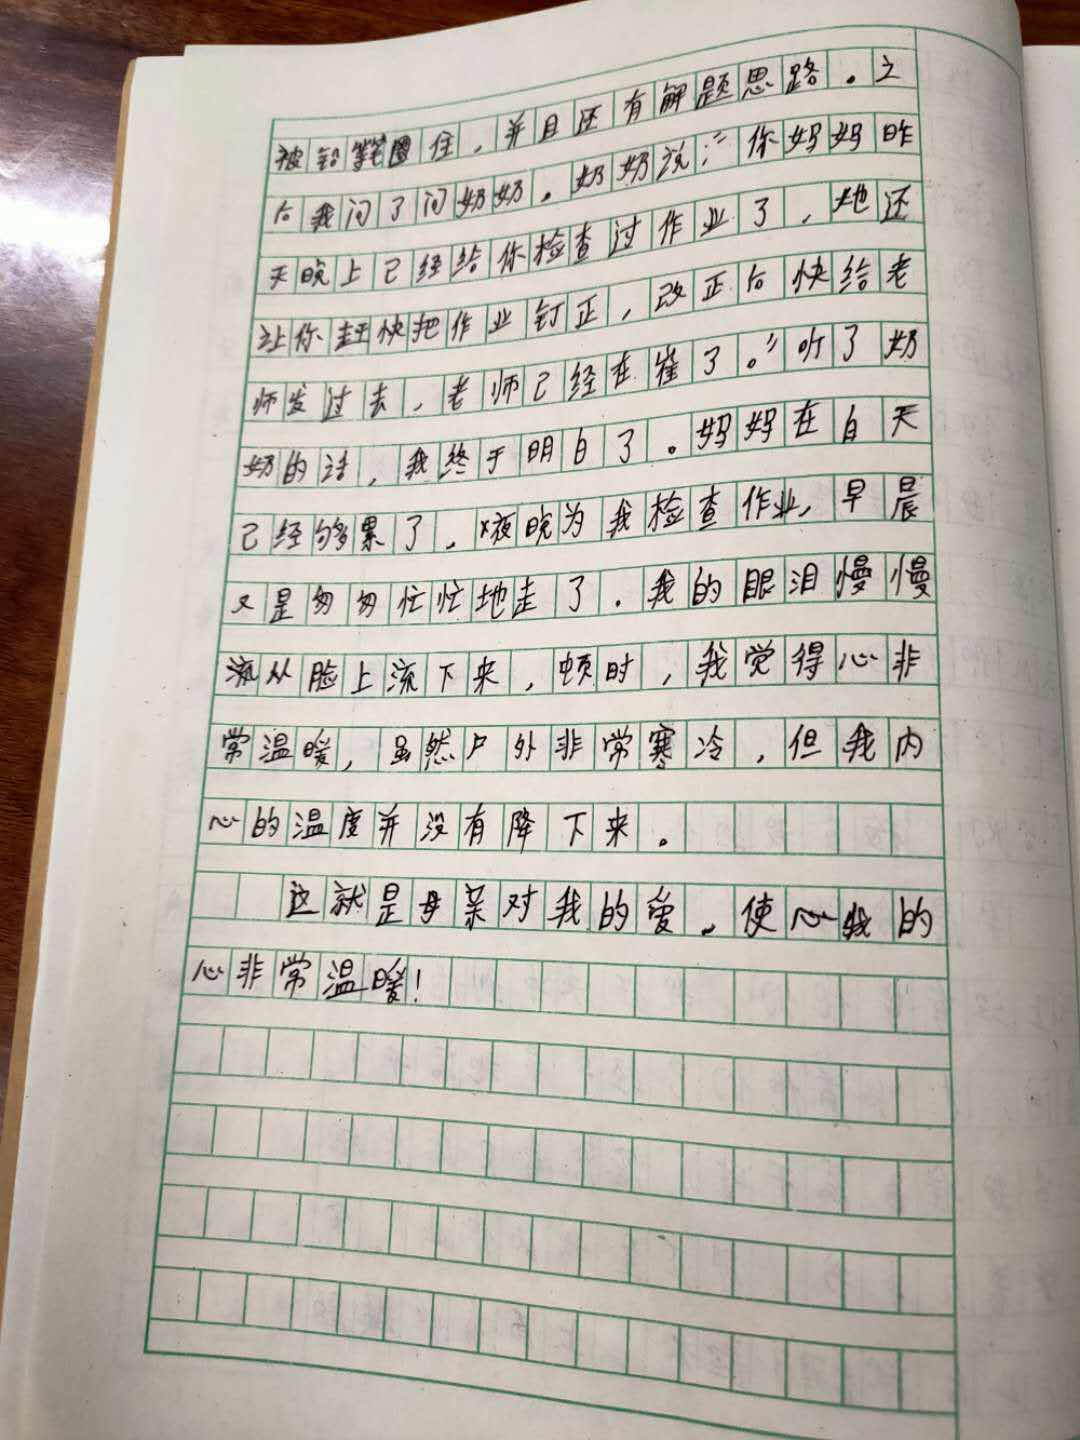 被铅笔圈住，并且还有解题思路。之
后我问了问奶奶。奶奶说：“你妈妈昨
天晚上已经给你检查过作业了，她还
让你赶快把作业钉正，改正后快给老
师发过去，老师已经在崔了。”听了奶
奶的话，我终于明白了。妈妈在白天
已经够累了，夜晚为我检查作业，早晨
又是匆匆忙忙地走了。我的眼泪慢慢
从脸上流下来，顿时，我觉得心非
常温暖，虽然户外非常寒冷，但我内
心的温度并没有降下来。
这就是母亲对我的爱。使心我的
心非常温暖！